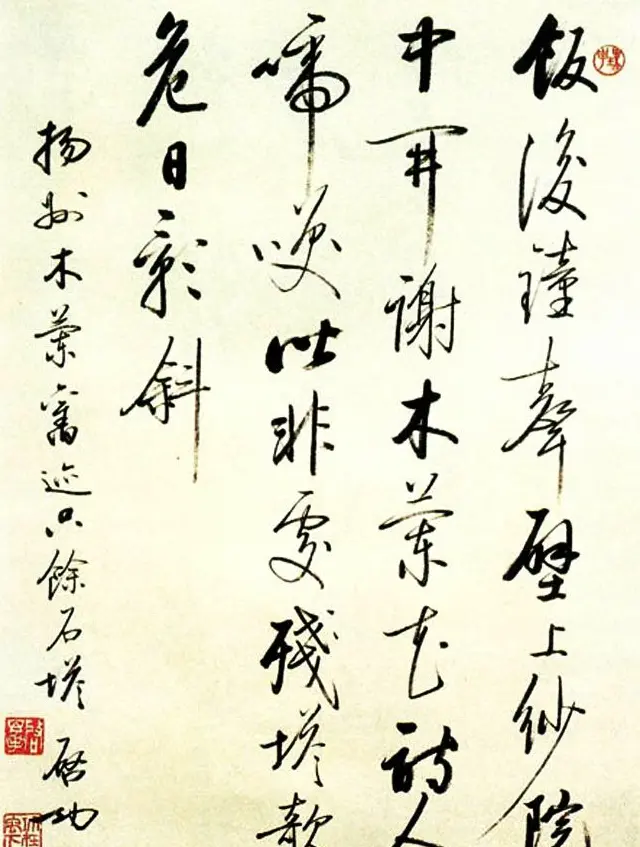 飯後鐘聲壁上紗院
中開謝木蘭花詩人
啼咲皆非處殘塔欹
危日影斜
揚州木蘭舊迹只餘石塔 启功